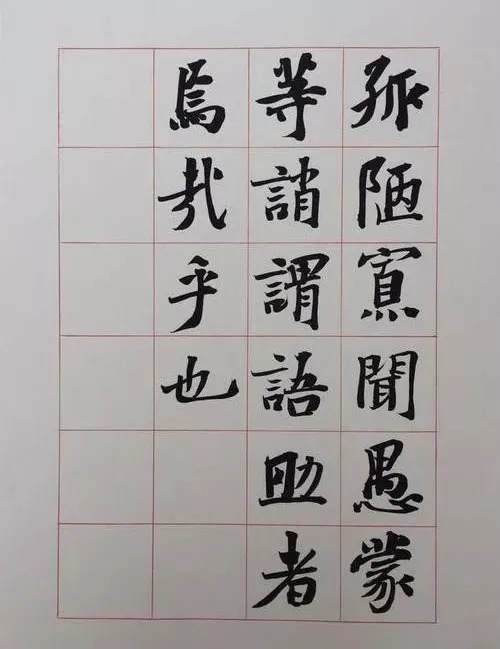 孤陋寡聞愚蒙
等誚謂語助者
焉哉乎也